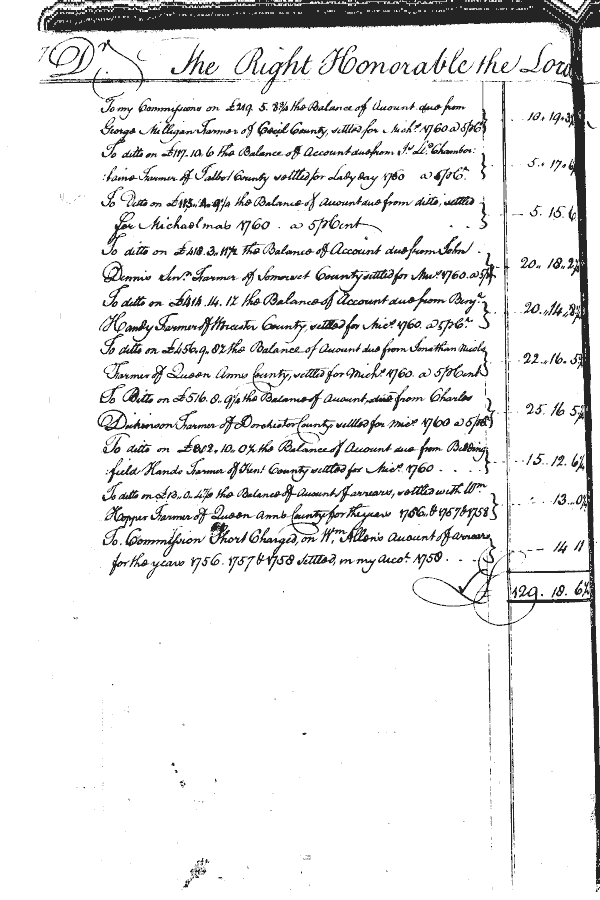 Dr. The Right Honorable the Lord
To my Commissions on £219. 5. 8¾ the Balance of Account due from
George Milligan Farmer of Cecil County, settled for Mich.s 1760 a 5 pCt. 10. 19. 3
To ditto on £117. 10. 6 the Balance of Account due from Js. Ll. Chamber:
:laine Farmer of Talbot County settled for Lady day 1760 a 5 pCt. 5. 17. 6
To Ditto on the Balance of Account due from ditto, settled
for Michaelmas 1760 . a 5 pCent 5. 15. 6
To ditto on £418. 3. 11½ the Balance of Account due from John
Dennis Senr. Farmer of Somerset County settled for 1760. a 5 pCt 20. 18. 2
To ditto on £414. 14. 1½ the Balance of Account due from Benja.
Handy Farmer of Worcester County, settled for Micl. 1760. a 5 pCt. 20. 14. 8
To ditto on £456. 9. 8½ the Balance of Account due from Jonathan Nicols
Farmer of Queen Anns County, settled for Michs. 1760. a 5 pCent 22. 16. 5
To Ditto on £516. 8. 9¼ the Balance of Account due from Charles
Dickinson Farmer of Dorchester County settled for Micl. 1760 a 5 pCt 25. 16 5
To ditto on £312. 10. 0½ the Balance of Account due from Bedding
field Hands Farmer of Kent County settled for Micl. 1760 . . . . 15. 12. 6
To ditto on £13. 0. 4¾ the Balance of Account of arrears, settled with Wm.
Hopper Farmer of Queen Anns County for the years 1756. & 1757 & 1758 . 13. 0
To Commission Short Charged, on Wm. Allens Account of arrears
for the years 1756. 1757 & 1758 settled, in my Acco.t 1758 . . . . 14 11
£ 129. 18. 6